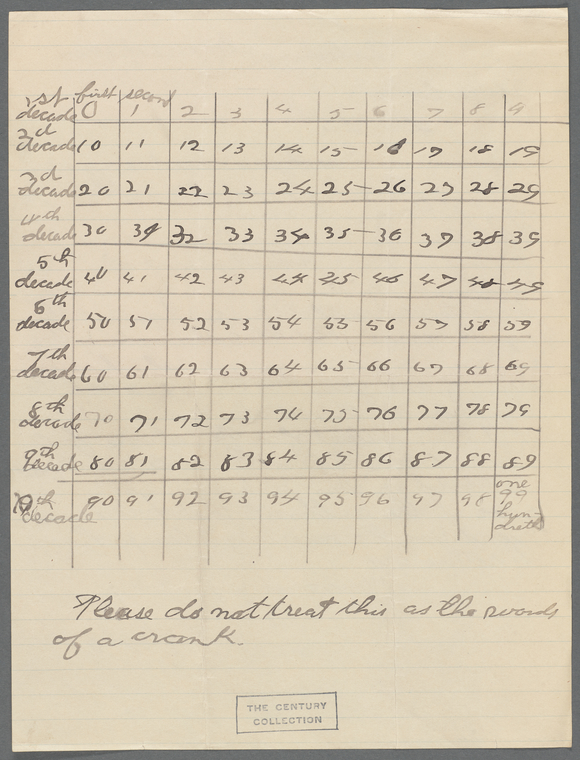 first second
1st decade 0 1 2 3 4 5 6 7 8 9
2d decade 10 11 12 13 14 15 16 17 18 19
3d decade 20 21 22 23 24 25 26 27 28 29
4th decade 30 31 32 33 34 35 36 37 38 39
5th decade 40 41 42 43 44 45 46 47 48 49
6th decade 50 51 52 53 54 55 56 57 58 59
7th decade 60 61 62 63 64 65 66 67 68 69
8th decade 70 71 72 73 74 75 76 77 78 79
9th decade 80 81 82 83 84 85 86 87 88 89
10th decade 90 91 92 93 94 95 96 97 98 99
one
hun-
dreth
Please do not treat this as the words
of a crank.
THE CENTURY
COLLECTION